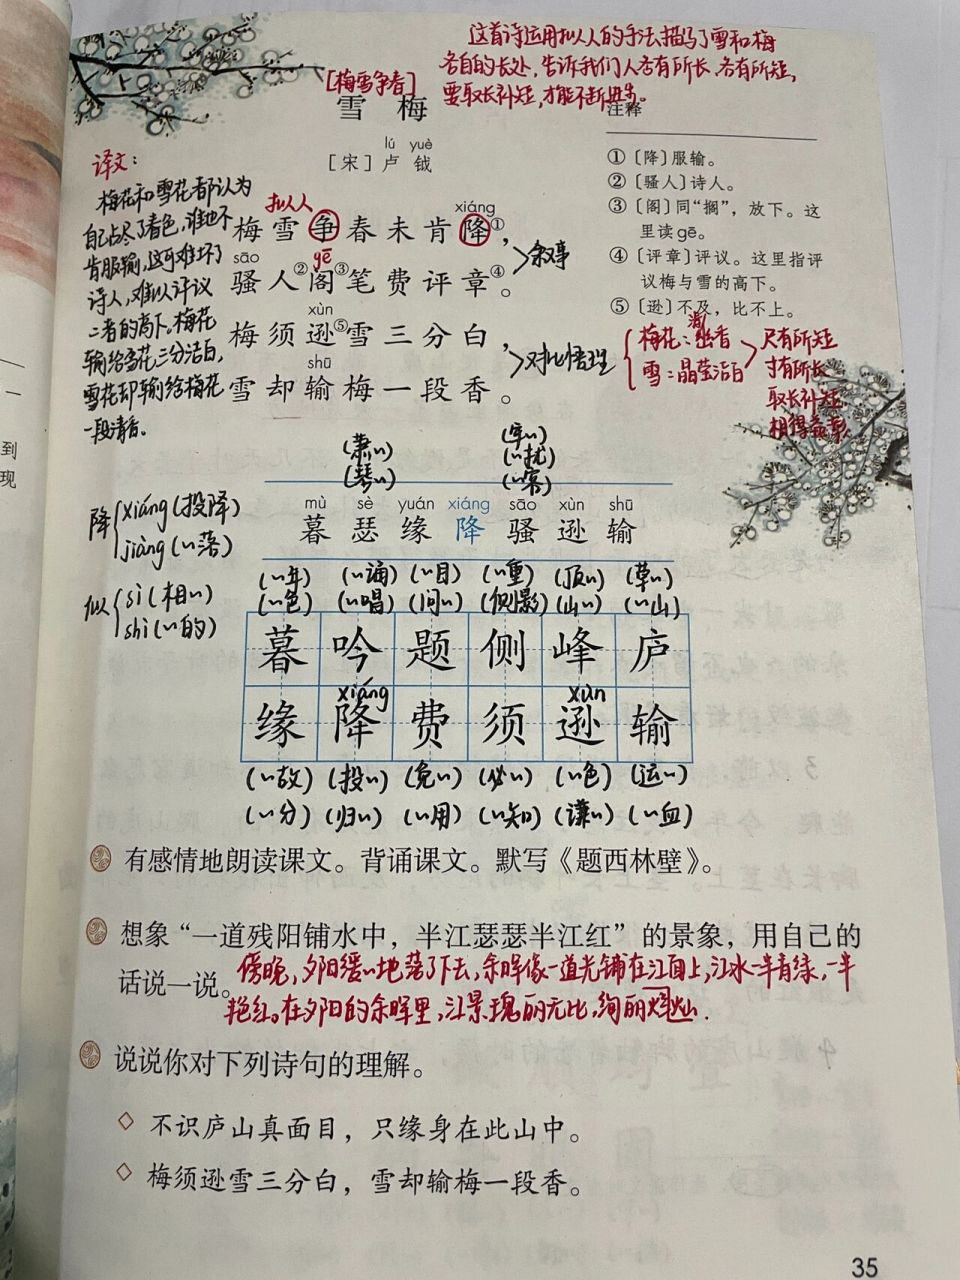 这首诗运用拟人的手法描写了雪和梅
各自的长处,告诉我们人各有所长,各有所短,
要取长补短,才能不断进步。
[梅雪争春]
雪 梅
lú yuè
[宋] 卢 钺
注释
① 〔降〕服输。
② 〔骚人〕诗人。
③ 〔阁〕同“搁”，放下。这
里读gē。
④ 〔评章〕评议。这里指评
议梅与雪的高下。
⑤ 〔逊〕不及，比不上。
译文:
梅花和雪花都认为
自己占尽了春色,谁也不
肯服输,这可难坏了
诗人,难以评议
二者的高下。梅花
输给雪花三分洁白,
雪花却输给梅花
一段清香。
拟人
xiáng
梅雪争春未肯降①，
余叙事
sāo gē
骚人②阁③笔费评章④。
xùn
梅须逊⑤雪三分白，
对比悟理
shū
雪却输梅一段香。
梅花:幽香
雪:晶莹洁白
尺有所短
寸有所长
取长补短
相得益彰
(萧〃) (牢〃)
(琴〃) (〃扰)
(〃客)
mù sè yuán xiáng sāo xùn shū
暮 瑟 缘 降 骚 逊 输
降 xiáng (投降)
jiàng (〃落)
似 sì (相〃)
shì (〃的)
(〃年) (〃诵) (〃目) (〃重) (顶〃) (草〃)
(〃色) (〃唱) (问〃) (侧影) (山〃) (〃山)
暮 吟 题 侧 峰 庐
xiáng xùn
缘 降 费 须 逊 输
(〃故) (投〃) (免〃) (必〃) (〃色) (运〃)
(〃分) (归〃) (〃用) (〃知) (谦〃) (〃血)
有感情地朗读课文。背诵课文。默写《题西林壁》。
想象“一道残阳铺水中，半江瑟瑟半江红”的景象，用自己的
话说一说。
傍晚,夕阳缓〃地落了下去,余晖像一道光铺在江面上,江水一半青绿,一半
艳红。在夕阳的余晖里,江景瑰丽无比,绚丽灿烂.
说说你对下列诗句的理解。
◇ 不识庐山真面目，只缘身在此山中。
◇ 梅须逊雪三分白，雪却输梅一段香。
35
到
现